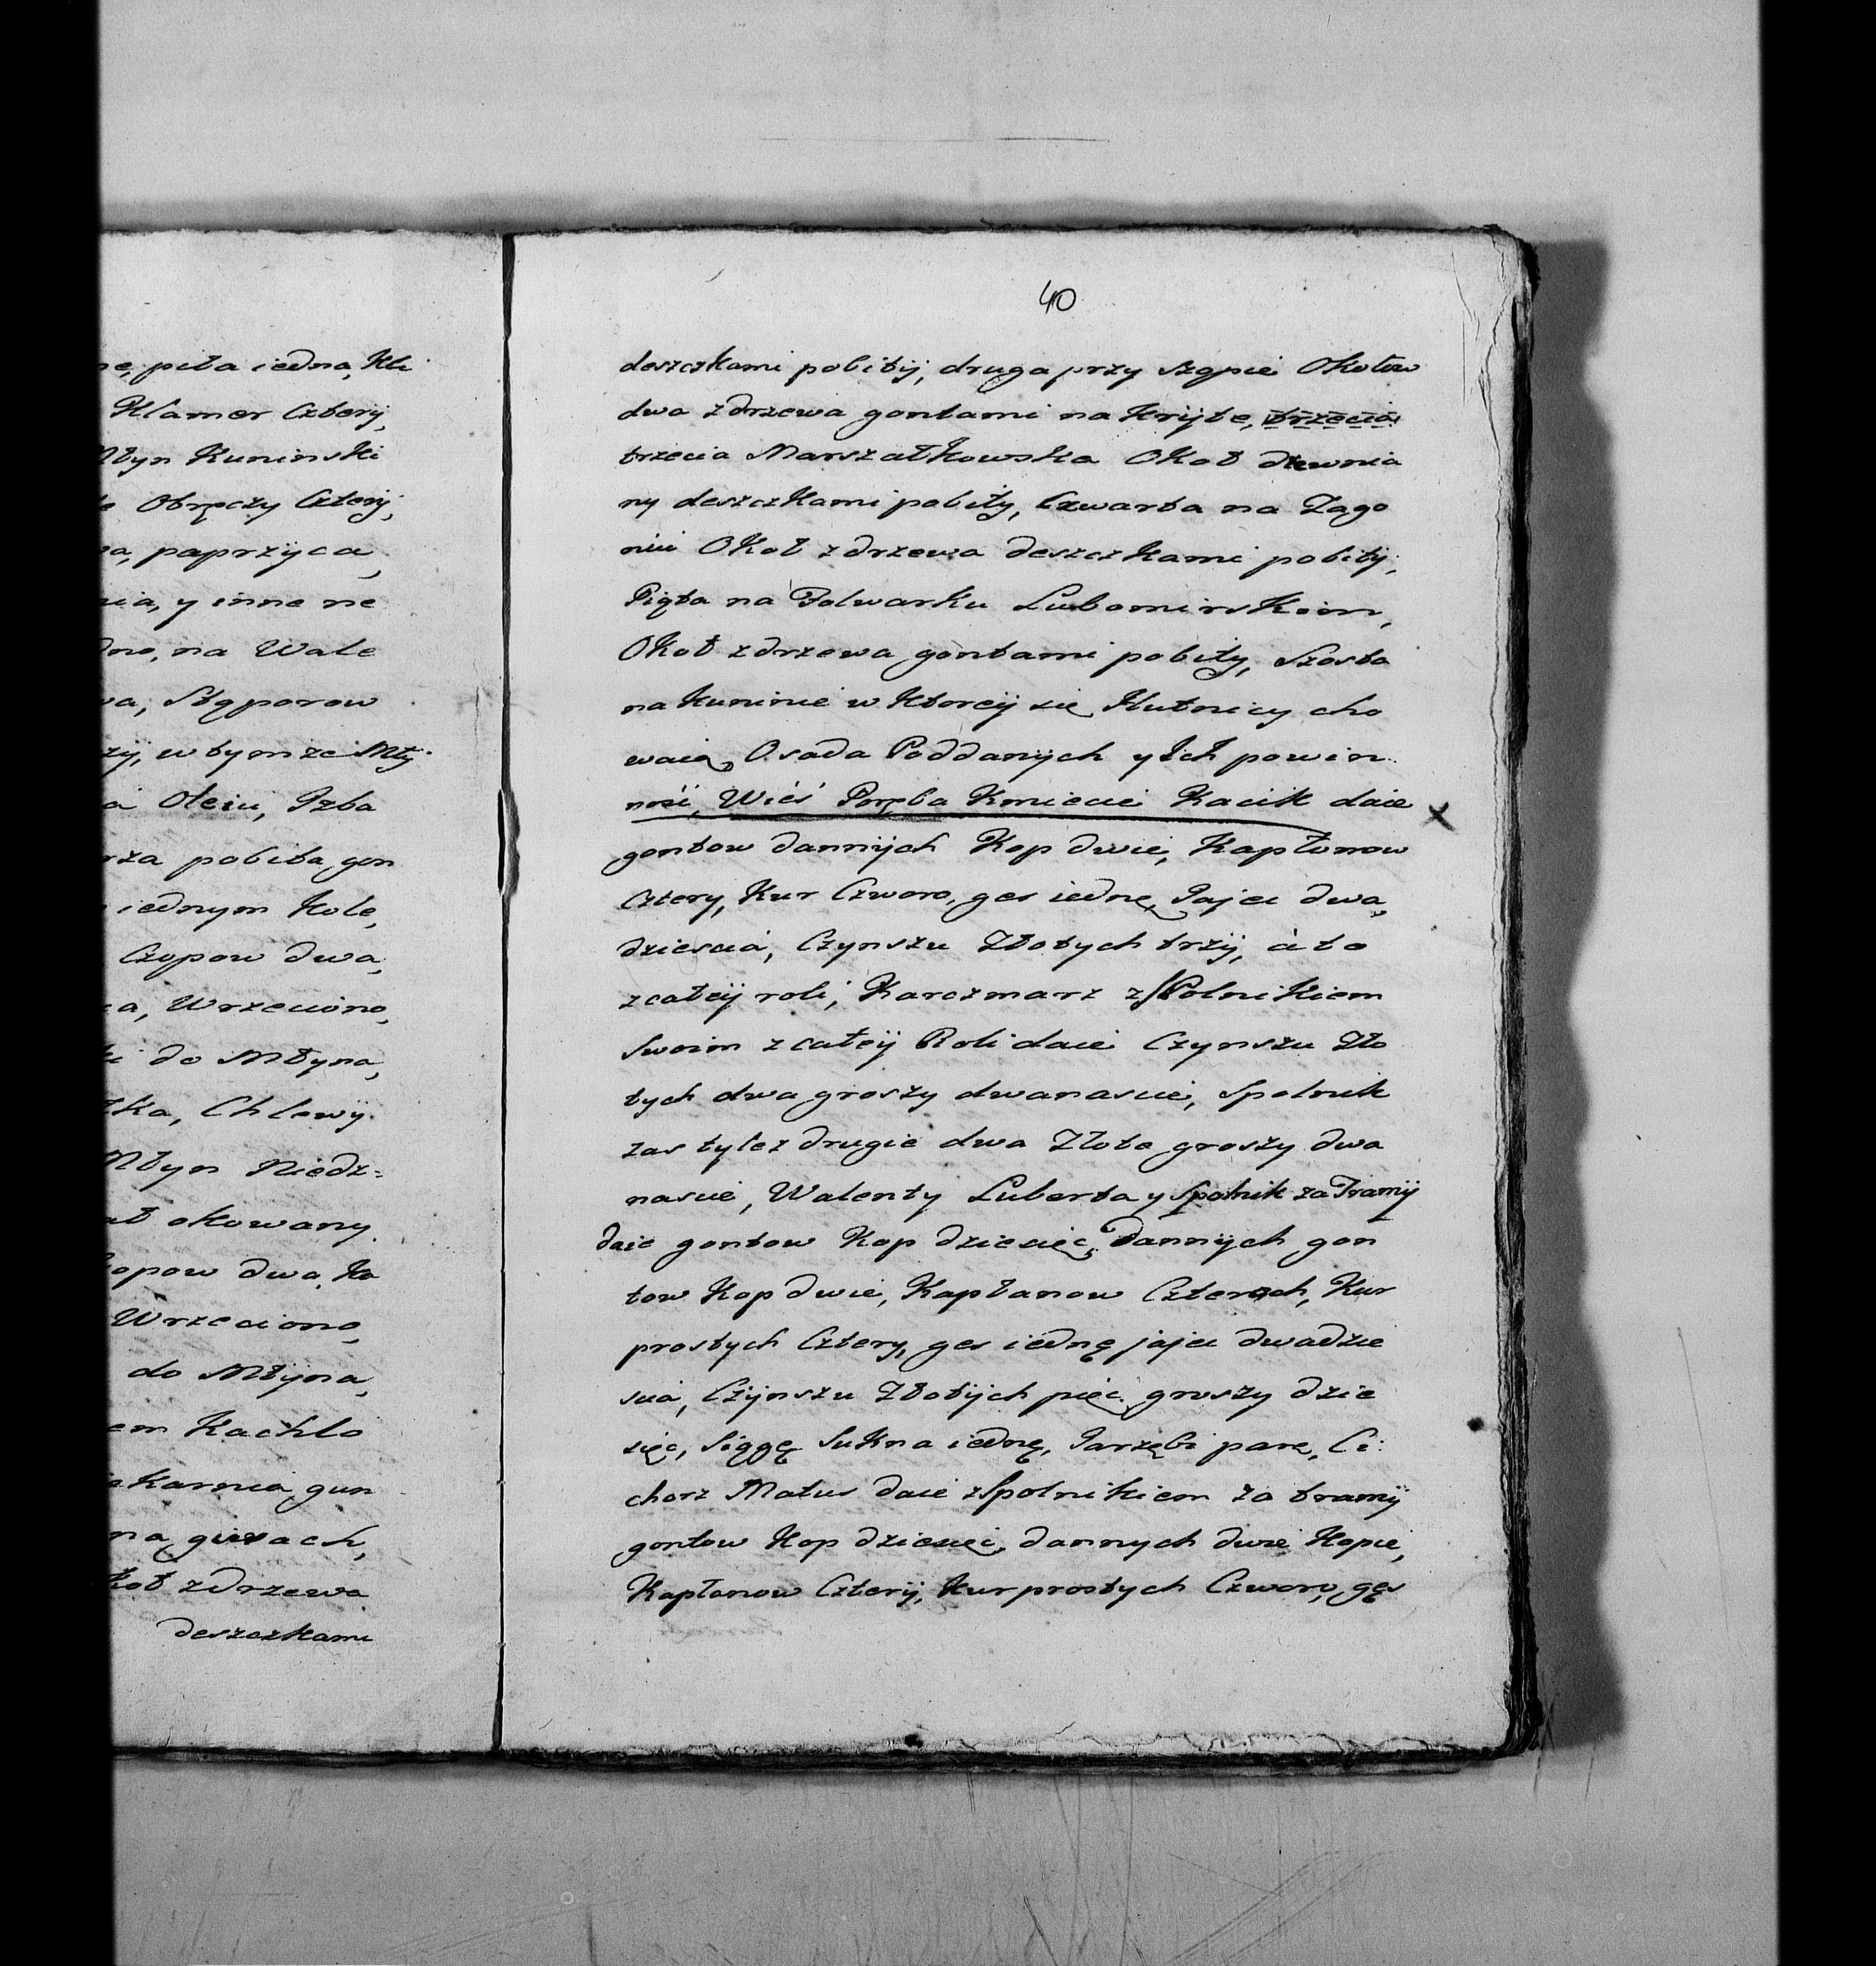 ne, piła iedna, Kli
Klamer Cztery,
Młyn Kuninski
Obręczy Cztery,
paprzyca,
nia, y inne ne
dno, na Wale
wa, Stąporow
w tymze Mły
Oleiu, Izba
rza pobita gon
iednym Kole,
Czopow dwa,
ca, Wrzeciono,
do Młyna,
Chlewy
Młyn Niedz=
ał okowany
opow dwa, Ko
Wrzeciono,
do Młyna,
em Kachlo
Karnia gun
na gwach,
koł zdrzewa
deszczkami
40
deszczkami pobity, druga przy szopie Okołow
dwa zdrzewa gontami na Kryte, trzecia
trzecia Marszałkowska Okoł drewnia
ny deszczkami pobity, Czwarta na Zago
niu Okoł zdrzewa deszczkami pobity,
Piąta na Folwarku Lubomirskim,
Okoł zdrzewa gontami pobity, Szosta
na Kuninie w Ktorey sie Hutnicy cho
waią, Osada Poddanych y Ich powin
nosi, Wieś Poręba Kmiecie Kacik daie
gontow dannych Kop dwie, Kapłonow
Cztery, Kur Czworo, ges iednę, Jajec dwa
dziescia, Czynszu Złotych trzy, à to
zcałey roli, Karczmarz zSpolnikiem
Swoim zcałey Roli daie Czynszu Zło
tych dwa groszy dwanascie, Spolnik
zas tylez drugie dwa Złote groszy dwa
nascie, Walenty Luberta y Spolnik za Tramy
daie gontow Kop dziesięc, dannych gon
tow Kop dwie, Kapłanow Czterech, Kur
prostych Cztery, ges iednę jajec dwadzie
scia, Czynszu Złotych pięc groszy dzie
sięc, Siągę Sukna iednę, Jarzębi parę, Ci
chorz Matus daie zSpolnikiem za tramy
gontow Kop dziesiec, dannych dwie Kopie,
Kapłanow Cztery, Kur prostych Czworo, gęs